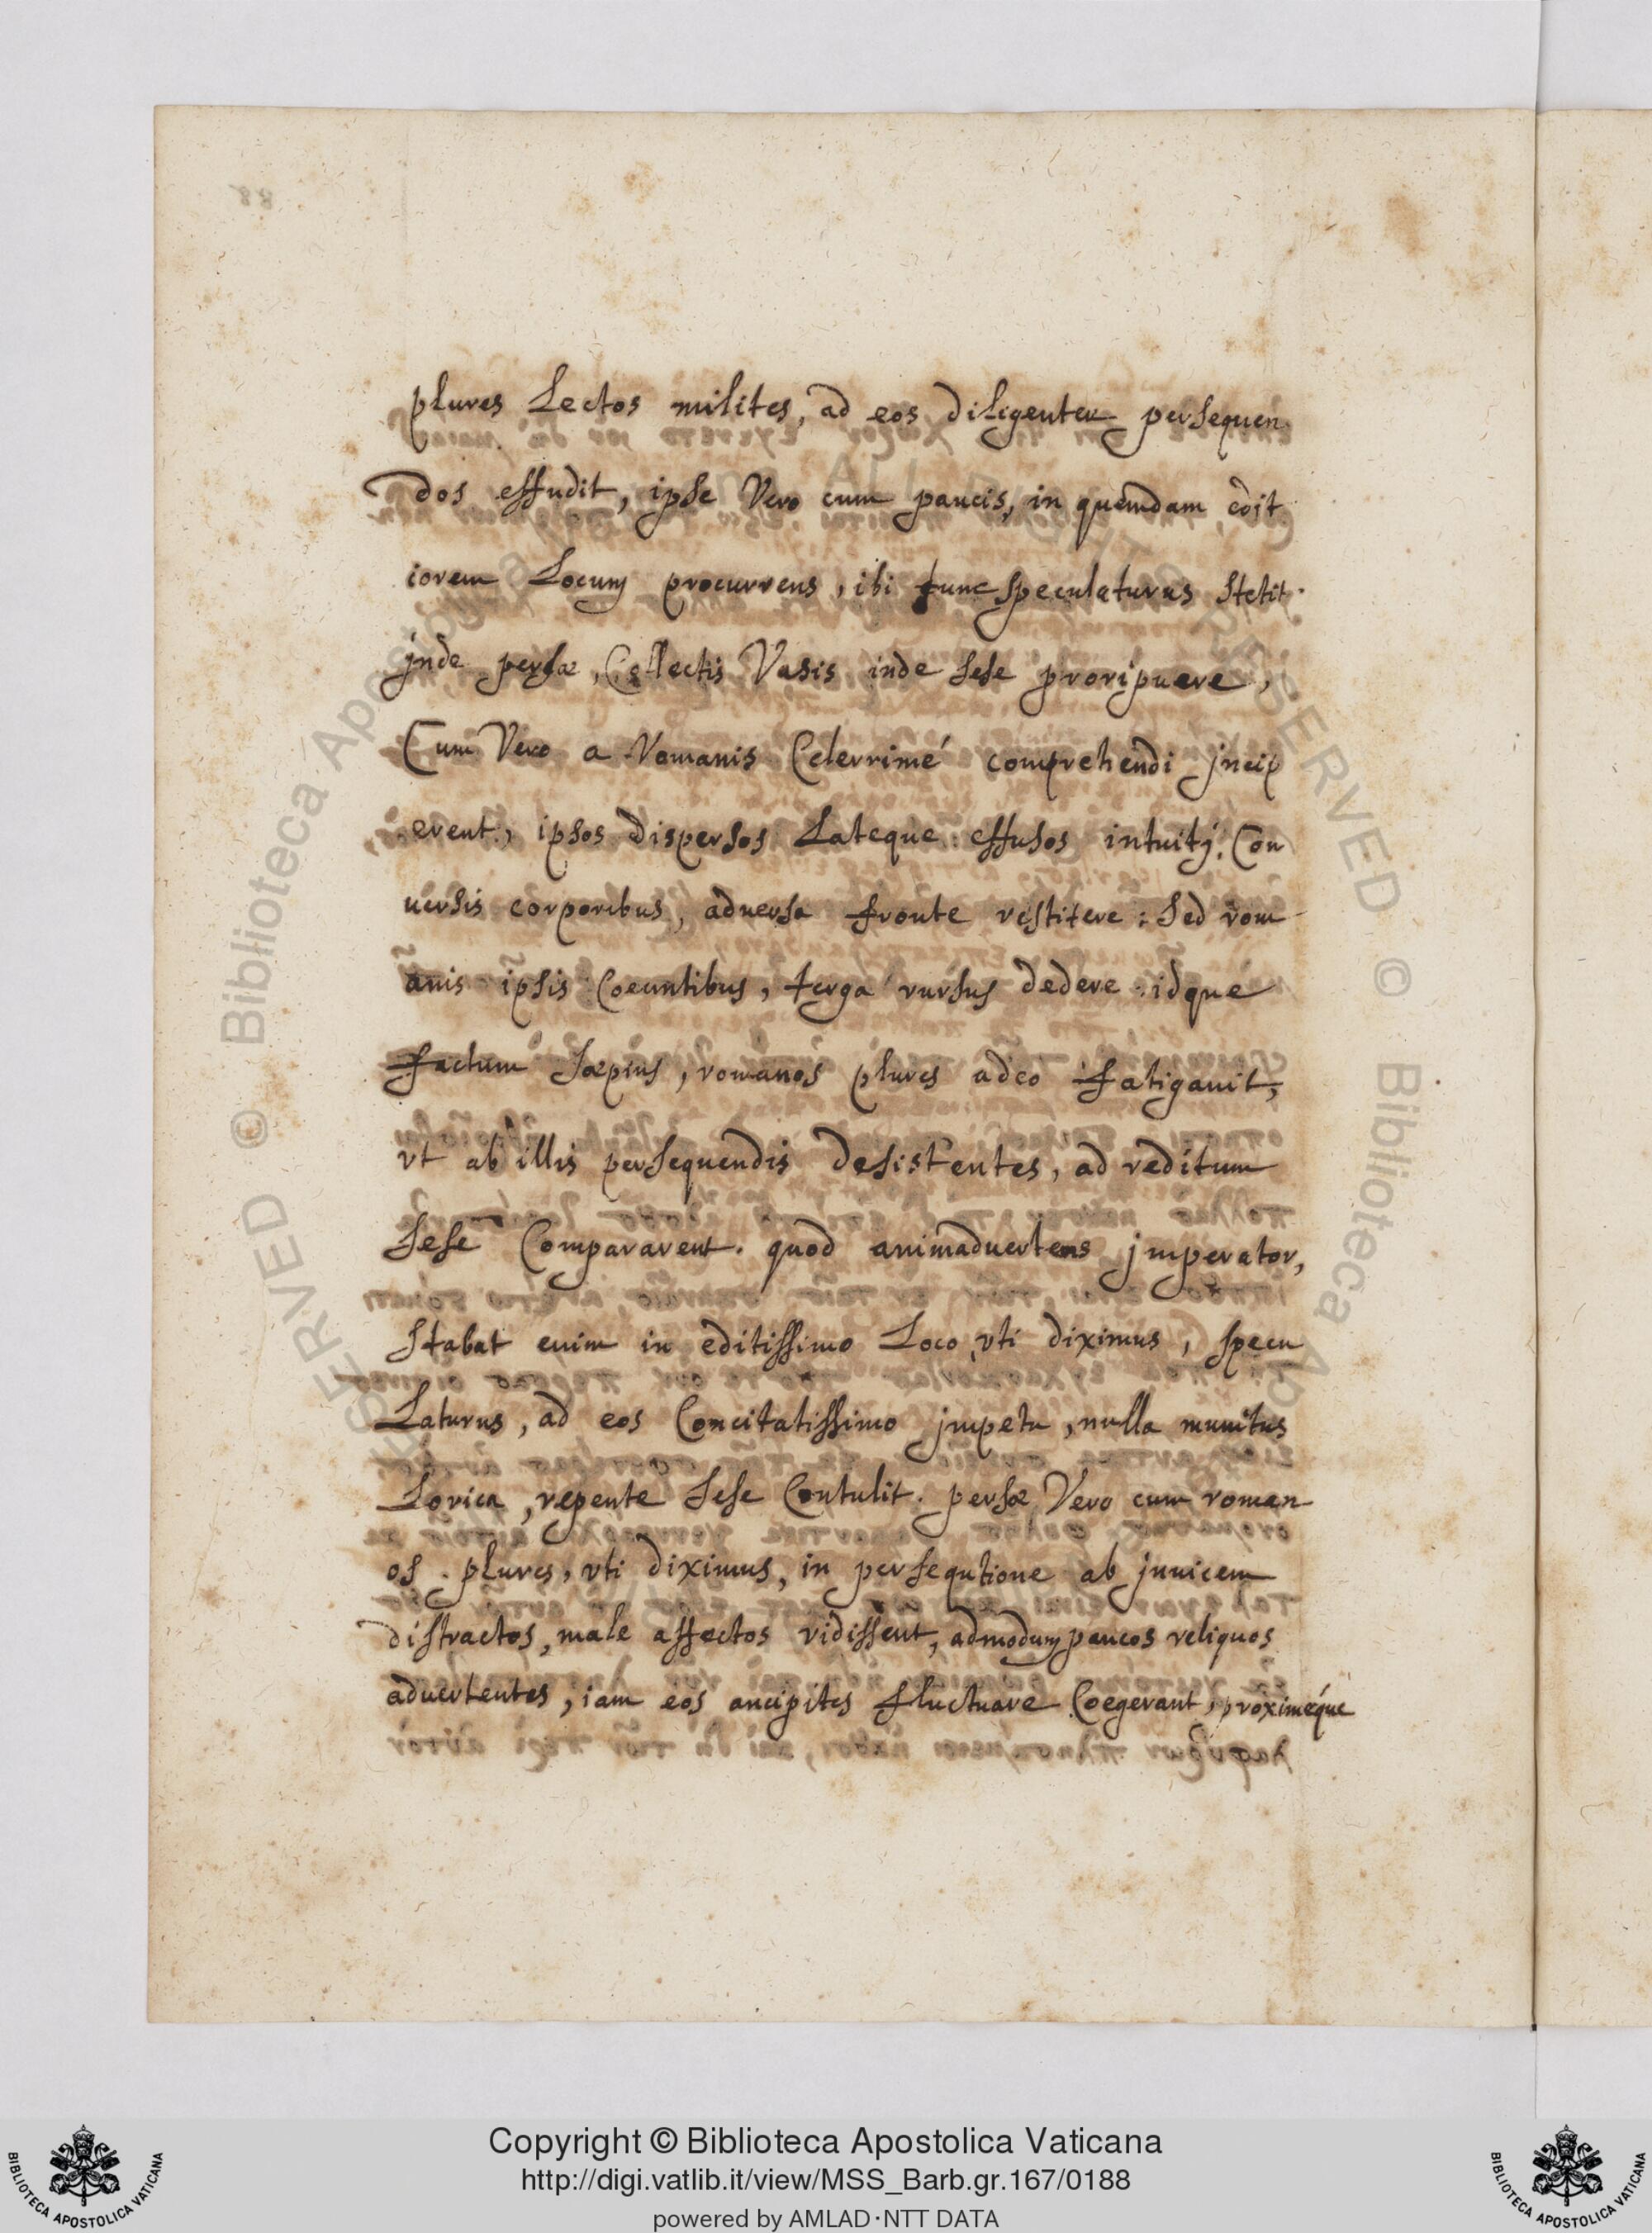 plures Lectos milites, ad eos diligenter persequen
dos effudit, ipse Vero cum paucis, in quemdam edit
iorem Locum procurrens, ibi tunc speculaturus stetit.
jnde persæ, Collectis Vasis inde sese proripuere,
Cum Vero a Romanis Celerrimé comprehendi jncip
erent, ipsos dispersos Lateque effusos intuitj. Con
uersis corporibus, aduersa fronte restitere: sed rom
anis ipsis Coeuntibus, terga rursus dedere idque
factum sæpius, romanos plures adeo fatigauit,
vt ab illis persequendis desistentes, ad reditum
sese Compararent. quod animaduertens jmperator,
stabat enim in editissimo Loco vti diximus, specu
Laturus, ad eos Concitatissimo jmpetu, nulla munitus
Lorica, repente sese Contulit. persæ Vero cum roman
os. plures, vti diximus, in persequtione ab jnuicem
distractos, male affectos vidissent, admodum paucos reliquos
aduertentes, iam eos ancipites fluctuare Coegerant, proximéque
© Biblioteca Apostolica Vaticana ALL RIGHTS RESERVED © Biblioteca Apostolica
Copyright © Biblioteca Apostolica Vaticana
http://digi.vatlib.it/view/MSS_Barb.gr.167/0188
powered by AMLAD·NTT DATA
BIBLIOTECA APOSTOLICA VATICANA
BIBLIOTECA APOSTOLICA VATICANA